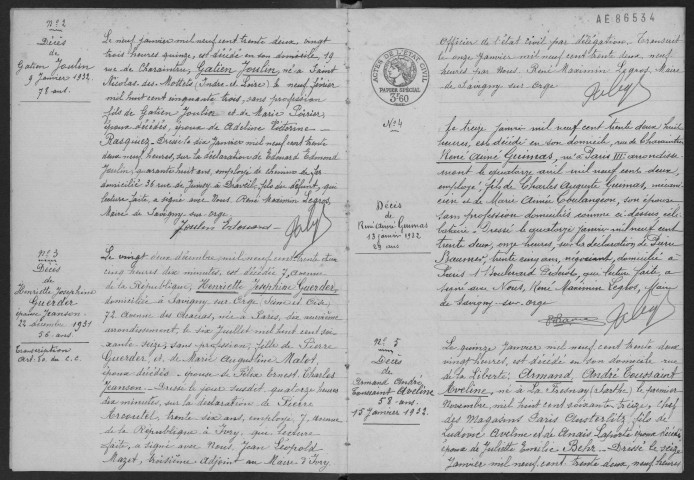 N° 2
Décès
de
Gatien Joulin
9 Janvier 1932
78 ans.
Le neuf janvier mil neuf cent trente deux, vingt
trois heures quinze, est décédé en son domicile, 19
rue de Charaintru, Gatien Joulin, né à Saint
Nicolas des Mottets (Indre et Loire) le neuf février
mil huit cent cinquante trois, sans profession
fils de Gatien Joulin et de Marie Poirier,
époux décédés, époux de Adeline Victorine
Dressé le dix janvier mil neuf cent trente
deux neuf heures, sur la déclaration de Edouard Edmond
Joulin, quarante huit ans, employé de chemins de fer
domicilié 36 rue de Juvisy à Draveil, fils du défunt, qui
lecture faite, a signé avec Nous, René Maximin Legros,
Maire de Savigny sur Orge.
N° 3
Décès
de
Henriette Joséphine
Guerder
épouse Jeanson
22 décembre 1931
56 ans.
Transcription
Art. 80 du C.C.
Le vingt décembre mil neuf cent trente
cinq heures dix minutes, est décédée 7 avenue
de la République, Henriette Joséphine Guerder,
domiciliée à Savigny sur Orge Seine et Oise,
72 Avenue des Acacias, née à Paris, dix neuvième
arrondissement, le six Juillet mil huit cent soixante
seize, sans profession, fille de Pierre
Guerder et de Marie Augustine Malot,
époux décédés - épouse de Félix Ernest Charles
Jeanson - Dressé le jour susdit, quatorze heures
dix minutes, sur la déclaration de Pierre
trente six ans, employé, 7 avenue
de la République à Ivry, que lecture
faite, a signé avec Nous, Jean Léopold
Mazet, troisième Adjoint au Maire d'Ivry
AE 86534
Officier de l'état civil par délégation. Transcrit
le onze Janvier mil neuf cent trente deux neuf
heures par Nous, René Maximin Legros, Maire
de Savigny sur Orge
ACTES DE L'ÉTAT CIVIL
PAPIER SPÉCIAL
3F60
N° 4
Décès
de
René Aimé Guimas
13 janvier 1932
29 ans
Le treize janvier mil neuf cent trente deux huit
heures, est décédé en son domicile, rue de Charaintru
René Aimé Guimas, né à Paris III° arrondissement
le quatorze avril mil neuf cent deux,
employé, fils de Charles Auguste Guimas, mécanicien
et de Marie Annie Coulangeon, son épouse
sans profession domiciliés comme ci-dessus célibataire
- Dressé le quatorze janvier mil neuf cent
trente deux, onze heures, sur la déclaration de Pierre
trente cinq ans, négociant, domicilié à
Paris Boulevard que lecture faite a
signé avec Nous, René Maximin Legros, Maire
de Savigny sur Orge
N° 5
Décès
de
Armand André
Toussaint Aveline
58 ans.
15 Janvier 1932.
Le quinze Janvier mil neuf cent trente deux
vingt heures, est décédé en son domicile rue
de la Liberté, Armand André Toussaint
Aveline, né à La Fresnay (Sarthe) le premier
Novembre mil huit cent soixante treize, chef
des Magasins Paris Austerlitz fils de
Ludovic Aveline et de Anaïs Laporte époux décédés,
époux de Juliette Emilie Behr - Dressé le seize
Janvier mil neuf cent trente deux, neuf heures